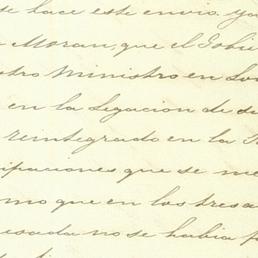 se hace este envio. ya
Moran, que el Gobie
tro Ministro en Lon
en la Legacion de su
reintegrado en la T
cipaciones que se me
mo que en los tres a
sada no se habia p